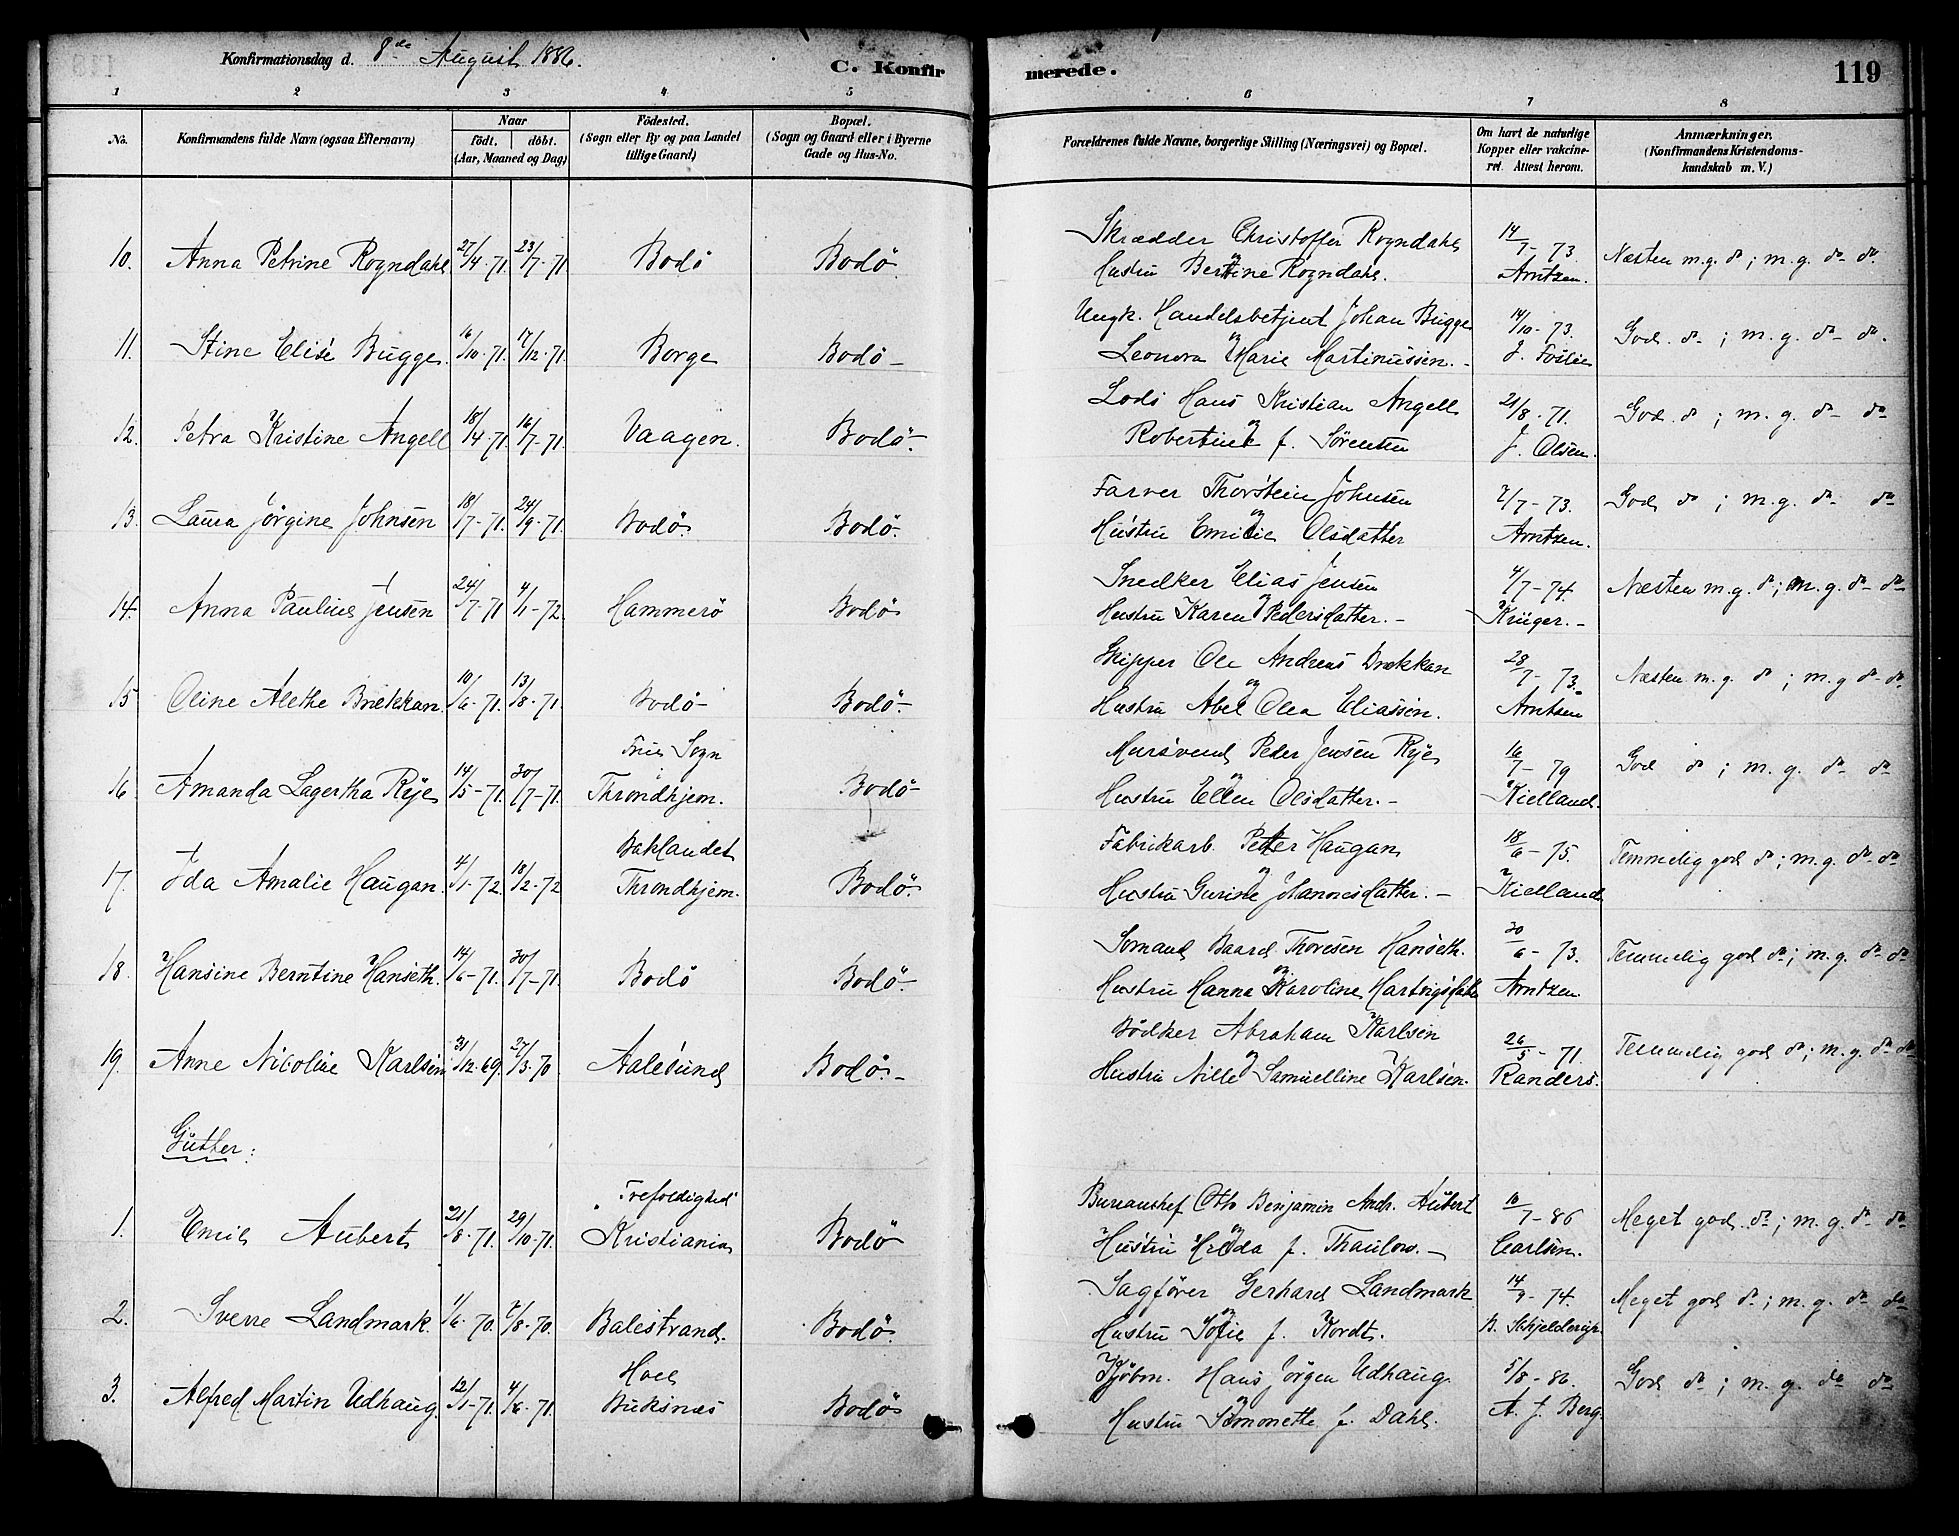 Konfirmationsdag d. 8de August 1886.
C. Konfirmerede.
119
1 2 3 4 5 6 7 8
No.
Konfirmandens fulde Navn (ogsaa Efternavn)
Naar
født. døbt.
(Aar, Maaned og Dag)
Fødested.
(Sogn eller By og paa Landet
tillige Gaard)
Bopæl.
(Sogn og Gaard eller i Byerne
Gade og Hus-No.
Forældrenes fulde Navne, borgerlige Stilling (Næringsvei) og Bopæl.
Om havt de naturlige
Kopper eller vakcine-
ret. Attest herom.
Anmærkninger.
(Konfirmandens Kristendoms-
kundskab m. V.)
10. Anna Petrine Rogndahl 27/4-71. 23/7-71 Bodø Bodø. Skrædder Christoffer Rogndahl og 14/7-73. Næsten m.g. do; m.g. do do.
Hustru Berntine Rogndahl. Arntzen.
11. Stine Elise Bugge. 16/10-71. 17/12-71. Borge Bodø- Ungk. Handelsbetjent Johan Bugge og 14/10-73. God do; m.g. do do.
Leonora Marie Martinussen.- J. Foslie
12. Petra Kristine Angell 18/4-71. 16/7-71. Vaagen. Bodø- Lods Hans Kristian Angell og 21/8-71. God do; m.g. do do
Robertine f. Sørensen J. Olsen.
13. Laura Jørgine Johnsen 18/7-71. 24/9-71. Bodø. Bodø. Farver Thorstein Johnsen og 7/7-73. God do; m.g. do do
Hustru Emilie Olsdatter Arntzen.
14. Anna Pauline Jensen 24/7-71 4/1-72. Hammerø Bodø Snedker Elias Jensen og 4/7-74. Næsten m.g. do; m.g. do do
Hustru Karen Pedersdatter.- Krüger.-
15 Oline Alethe Brækkan. 10/6-71. 13/8-71. Bodø- Bodø- Skipper Ole Andreas Brækkan og 28/7-73. Næsten m.g. do; m.g do do
Hustru Abel Olea Eliassen. Arntzen
Frue Sogn
16 Amanda Lagertha Rye 14/5-71. 30/7-71. Throndhjem. Bodø- Mursvend Peder Jensen Rye og 16/7-79 God do; m.g. do do
Hustru Ellen Olsdatter.- Kielland.
Baklandet
17. Ida Amalie Haugan. 4/1-72. 18/2-72 Throndhjem. Bodø- Fabrikarb. Petter Haugan og 18/6-75. Temmelig god do; m.g. do do
Hustru Johannesdatter.- Kielland
18. Hansine Berntine Hanseth. 14/6-71. 30/7-71. Bodø Bodø- Sømand Baard Thoresen Hanseth. og 30/6-73. Temmelig god do; m.g. do do
Hustru Hanna Karoline Hartvigsdatter Arntzen
19. Anne Nicoline Karlsen 31/12-69. 27/3-70 Aalesund Bodø.- Bødker Abraham Karlsen og 26/5-71. Temmelig god do; m.g. do do
Hustru Nille Samuelline Karlsen. Randers.
Gutter:
Trefoldighed
1. Emil Aubert 21/8-71. 29/10-71. Kristiania Bodø Bureauchef Otto Benjamin Andr. Aubert og 10/7-86 Meget god do; m.g. do do
Hustru Hedda f. Thaulow.- Carlsen.
2. Sverre Landmark. 1/6-70. 7/8-70. Balestrand. Bodø. Sagfører Gerhard Landmark og 14/9-74. Meget god do; m.g. do do
Hustru Sofie f. Kordt. B. Schjelderup.
Hol
3. Alfred Martin Udhaug. 12/1-71. 4/6-71. Buksnæs Bodø Kjøbm. Hans Jørgen Udhaug og 5/8-86. God do; m.g. do do
Hustru Simonette f. Dahl. A. J. Berg.